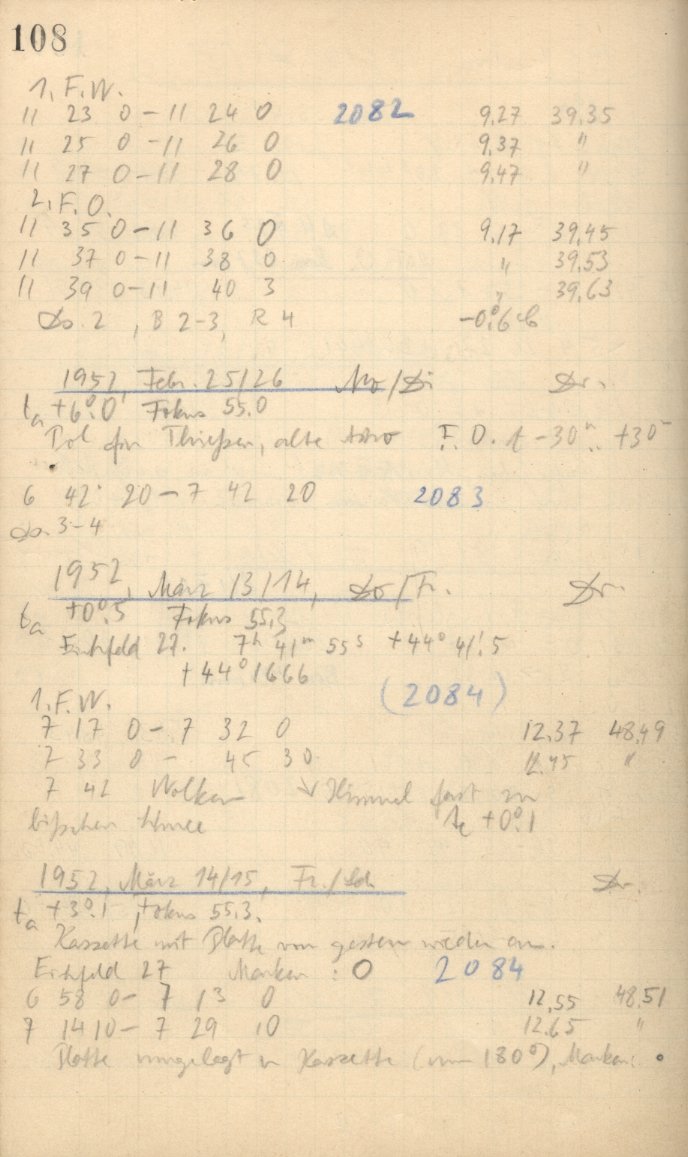 108
1. F.W.
11 23 0 – 11 24 0 2082 9,27 39,35
11 25 0 – 11 26 0 9,37 "
11 27 0 – 11 28 0 9,47 "
2. F.O.
11 35 0 – 11 36 0 9,17 39,45
11 37 0 – 11 38 0 " 39,53
11 39 0 – 11 40 3 " 39,63
2, B 2-3, R 4 -0°,6
1952, Febr. 25/26 Mo/Di Dr.
ta +6°,0 Fokus 55.0
Pol für Thießen, alte Astro F.O. t -30m +30m
6 42 20 – 7 42 20 2083
3-4
1952, März 13/14, Do/Fr. Dr.
ta +0°,5 Fokus 55,3
Eichfeld 27. 7h 41m 55s +44° 41',5
+44° 1666
1. F.W. (2084)
7 17 0 – 7 32 0 12,37 48,49
7 33 0 – 45 30 12,45 "
7 42 Wolken Himmel fast zu
bißchen te +0°,1
1952, März 14/15, Fr./Sch Dr.
ta +3°,1, Fokus 55,3.
Kassette mit Platte von gestern wieder an.
Eichfeld 27 Marken : O 2084
6 58 0 – 7 13 0 12,55 48,51
7 14 10 – 7 29 10 12,65 "
Platte umgelegt in Kassette (um 180°), Marken: •